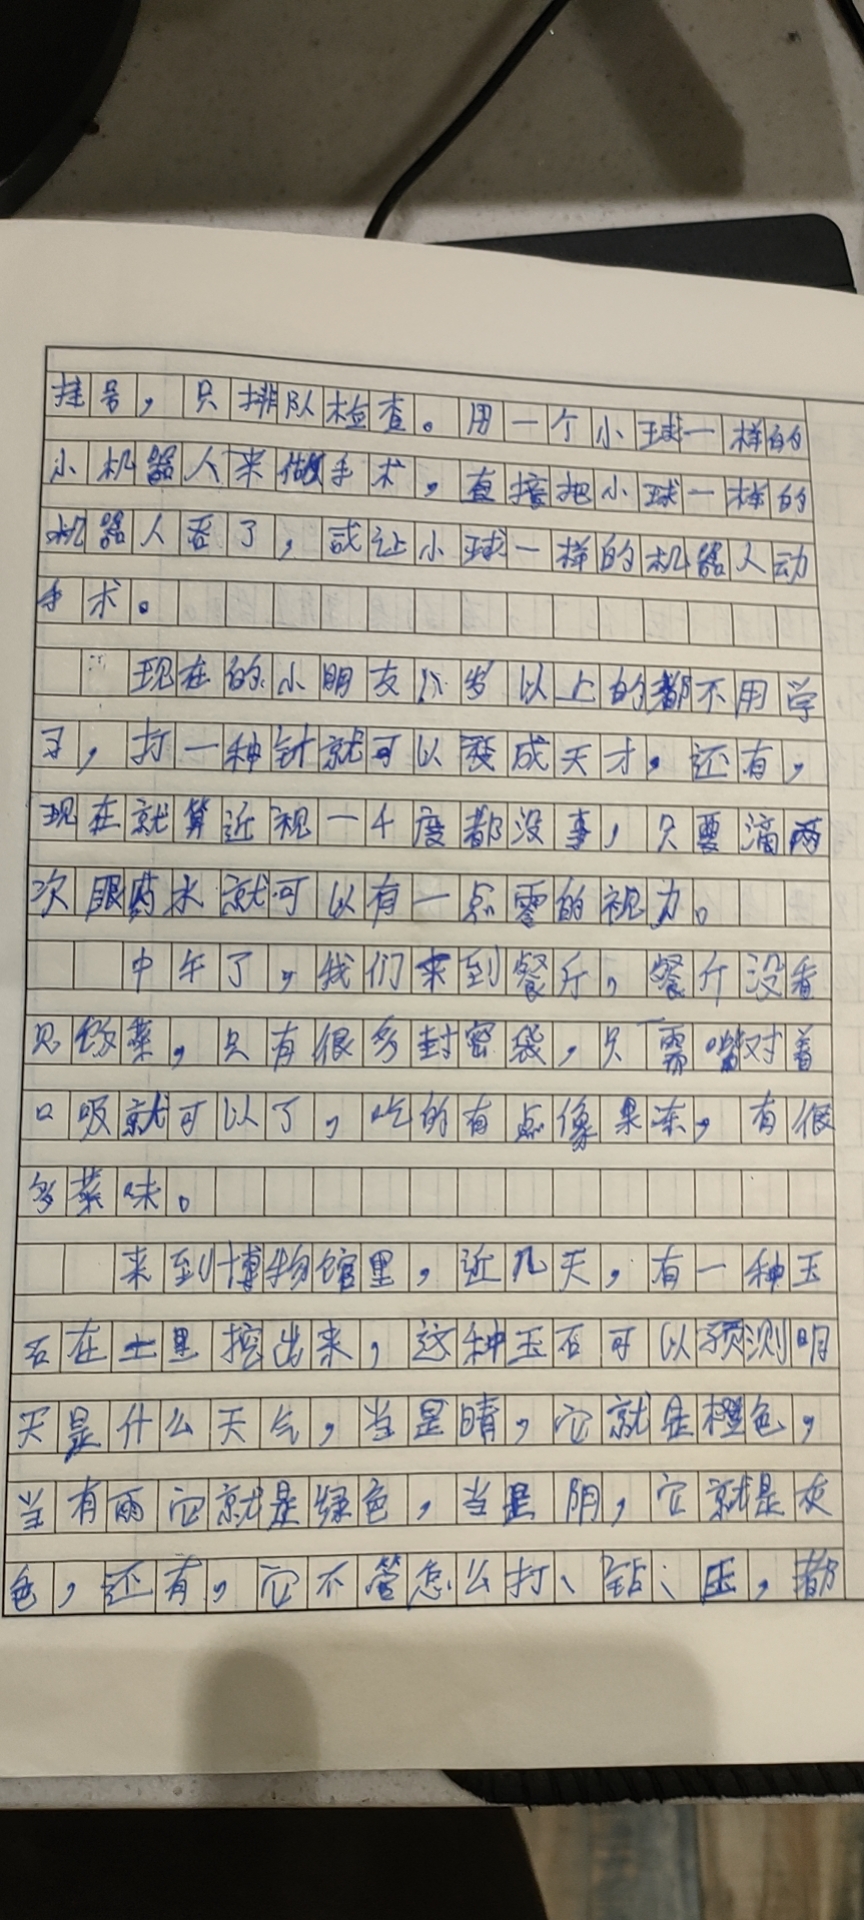 挂号，只排队检查。用一个小球一样的
小机器人来做手术，直接把小球一样的
机器人吞了，或让小球一样的机器人动
手术。
现在的小朋友岁以上的都不用学
习，打一种针就可以变成天才，还有，
现在就算近视一千度都没事，只要滴两
次眼药水就可以有一点零的视力。
中午了，我们来到餐厅，餐厅没看
见饭菜，只有很多封密袋，只需嘴对着
口吸就可以了，吃的有点像果冻，有很
多菜味。
来到博物馆里，近几天，有一种玉
石在土里挖出来，这种玉石可以预测明
天是什么天气，当是晴，它就是橙色，
当有雨它就是绿色，当是阴，它就是灰
色，还有，它不管怎么打、钻、压，都